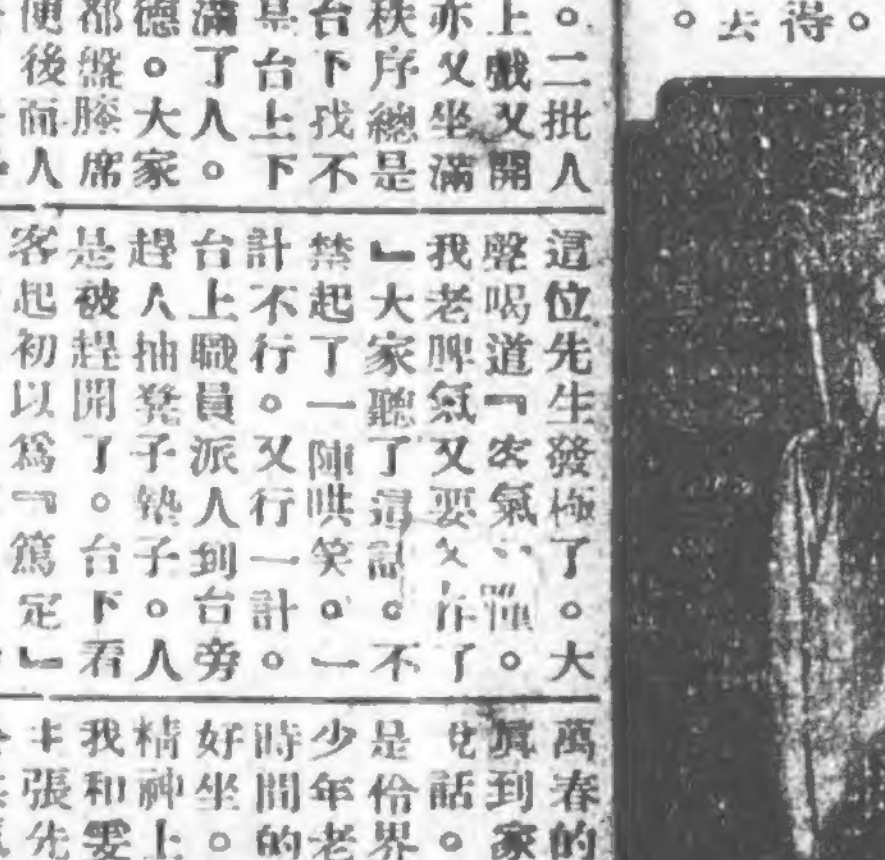 得。
去。
。二批人
上戲又開
亦又坐滿
秩序總是
台下找不
是台上下
滿了人。
德。大家
都盤膝席
便後面人
這位先生發極了。大
聲喝道『客氣、。
我老脾氣又要發作了
』大家聽了這話。不
禁起了一陣哄笑。一
計不行。又行一計。
台上職員派人到台旁
趕人抽凳子墊子。人
是被趕開了。台下看
客起初以爲『篤定』
萬春的
眞到家
話。
是伶界
少年老
時間的
好坐。
精神上
我和雯
張先